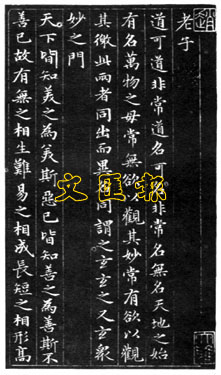 老子
道可道非常道名可名非常名無名天地之始
有名萬物之母常無欲以觀其妙常有欲以觀
其徼此兩者同出而異名同謂之玄玄之又玄衆
妙之門
天下皆知美之為美斯惡已皆知善之為善斯不
善已故有無之相生難易之相成長短之相形高
文匯報